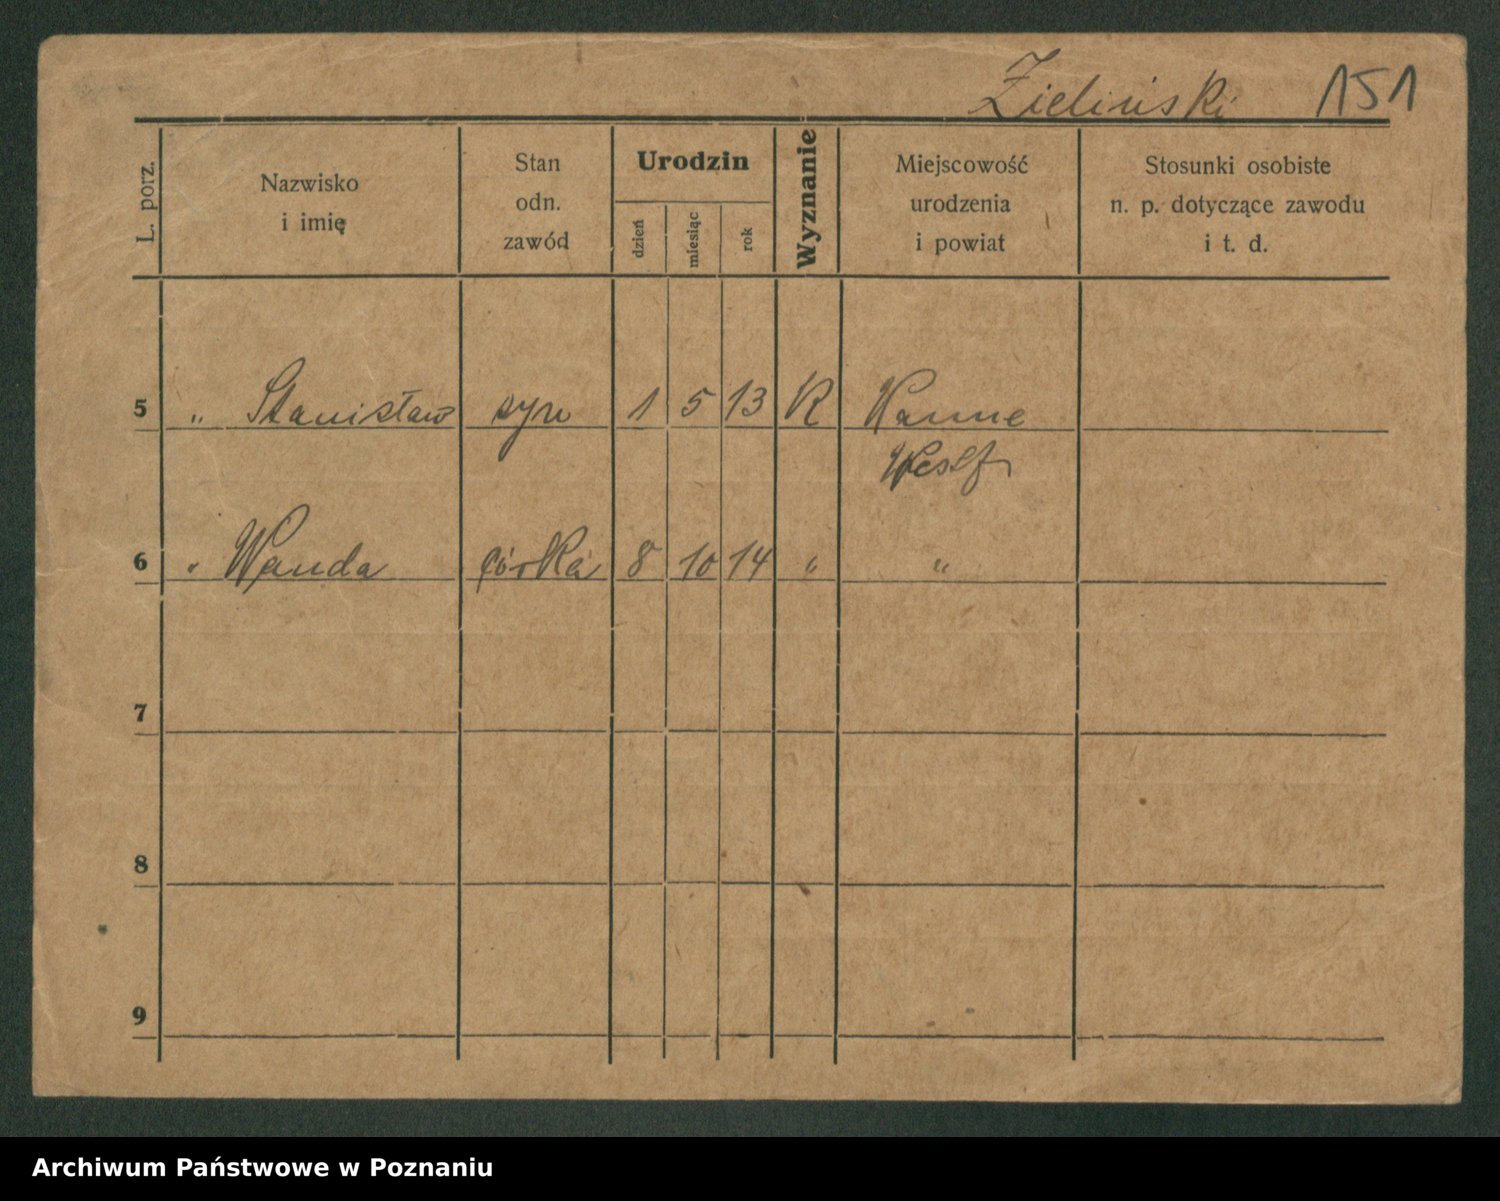 Zieliński 151
L. porz.
Nazwisko
i imię
Stan
odn.
zawód
Urodzin
dzień
miesiąc
rok
Wyznanie
Miejscowość
urodzenia
i powiat
Stosunki osobiste
n. p. dotyczące zawodu
i t. d.
5 „ Stanisław syn 1 5 13 K Wanne
Westf
6 „ Wanda córka 8 10 14 „ „
7
8
9
Archiwum Państwowe w Poznaniu